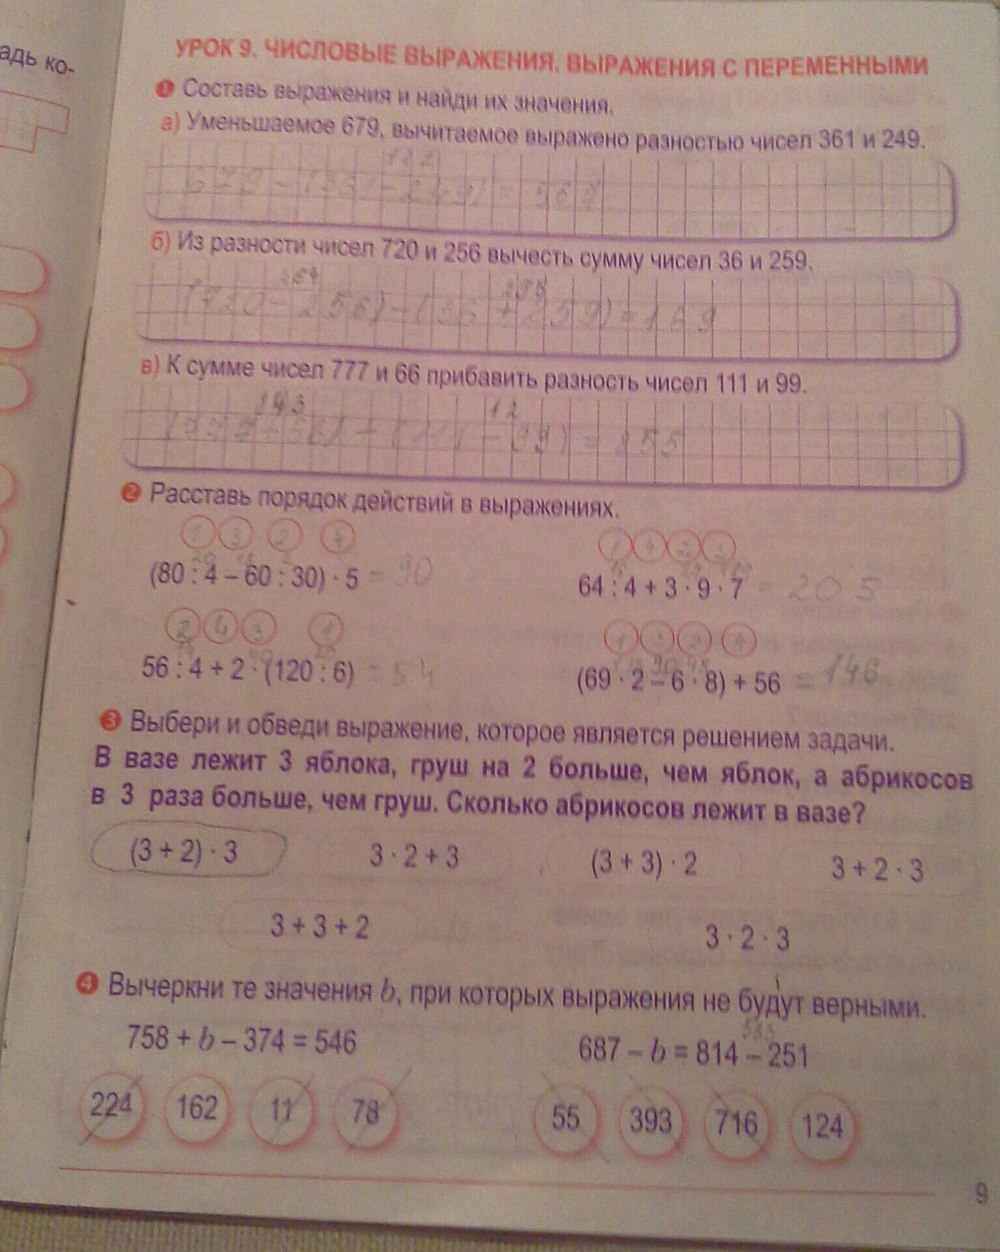 адь ко-
УРОК 9. ЧИСЛОВЫЕ ВЫРАЖЕНИЯ. ВЫРАЖЕНИЯ С ПЕРЕМЕННЫМИ
1 Составь выражения и найди их значения.
а) Уменьшаемое 679, вычитаемое выражено разностью чисел 361 и 249.
679 - (361 - 249) = 567
б) Из разности чисел 720 и 256 вычесть сумму чисел 36 и 259.
(720 - 256) - (36 + 259) = 169
в) К сумме чисел 777 и 66 прибавить разность чисел 111 и 99.
12
- 99) = 855
2 Расставь порядок действий в выражениях.
1 3 2 4
1 4 2 3
(80 : 4 – 60 : 30) · 5 = 90
64 : 4 + 3 · 9 · 7 = 205
2 4 3 1
1 3 2 4
56 : 4 + 2 · (120 : 6) = 54
(69 · 2 – 6 · 8) + 56 = 146
3 Выбери и обведи выражение, которое является решением задачи.
В вазе лежит 3 яблока, груш на 2 больше, чем яблок, а абрикосов
в 3 раза больше, чем груш. Сколько абрикосов лежит в вазе?
(3 + 2) · 3
3 · 2 + 3
(3 + 3) · 2
3 + 2 · 3
3 + 3 + 2
3 · 2 · 3
4 Вычеркни те значения b, при которых выражения не будут верными.
758 + b – 374 = 546
687 – b = 814 – 251
224 162 11 78
55 393 716 124
9